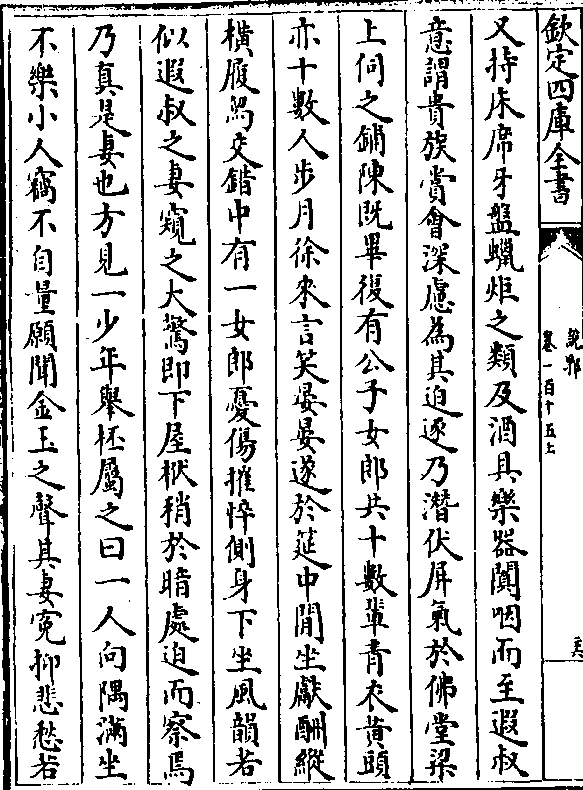 欽定四庫全書
說郛
卷一百十五上
又持床席牙盤蠟炬之類及酒具樂器闐咽而至遐叔
意謂貴族賞會深慮為其迫逐乃潛伏屏氣於佛堂梁
上伺之鋪陳既畢復有公子女郎共十數輩青衣黃頭
亦十數人步月徐來言笑晏晏遂於筵中閒坐獻酬縱
橫履舄交錯中有一女郎憂傷摧悴側身下坐風韻若
似遐叔之妻窺之大驚即下屋栿稍於暗處迫而察焉
乃真是妻也方見一少年舉杯屬之曰一人向隅滿坐
不樂小人竊不自量願聞金玉之聲其妻冤抑悲愁若